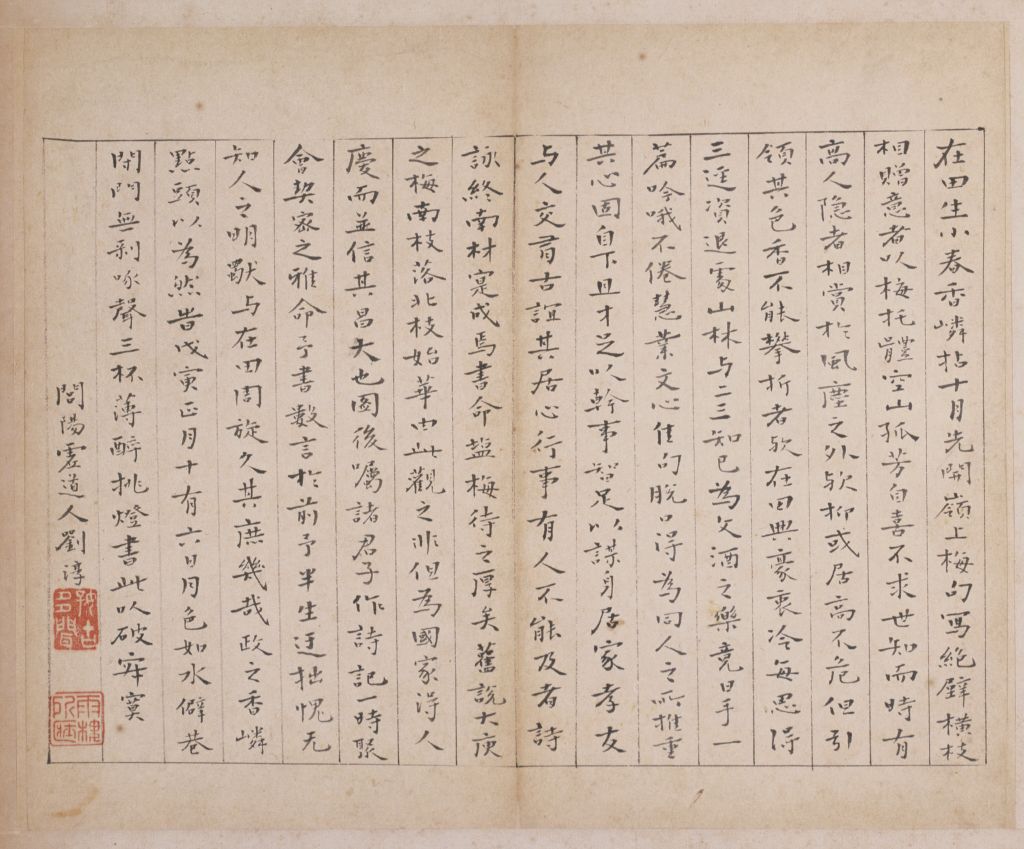 在田生小春香嶙拈十月先開嶺上梅句寫絕壁橫枝
相贈意者以梅托體空山孤芳自喜不求世知而時有
高人隐者相賞於風塵之外欤抑或居高不危但引
領其色香不能攀折者欤在田興豪衷冷每思得
三迳資退處山林与二三知已為文酒之樂竟日手一
篇吟哦不倦慧業文心佳句脫口浔為同人之所推重
其心固自下且才足以幹事智足以謀身居家孝友
与人交有古誼其居心行事有人不能及者詩
詠終南材寔成焉書命盐梅待之厚矣舊說大庾
之梅南枝落北枝始華由此觀之非但為國家浔人
慶而並信其昌大也圖後囑諸君子作詩記一時聚
會契家之雅命予書數言於前予半生迂拙愧无
知人之明獸与在田周旋久其庶幾哉政之香嶙
點頭以為然昔戊寅正月十有六日月色如水僻巷
閉門無剥啄聲三杯薄醉挑燈書此以破寂寞
問陽雲道人劉淳